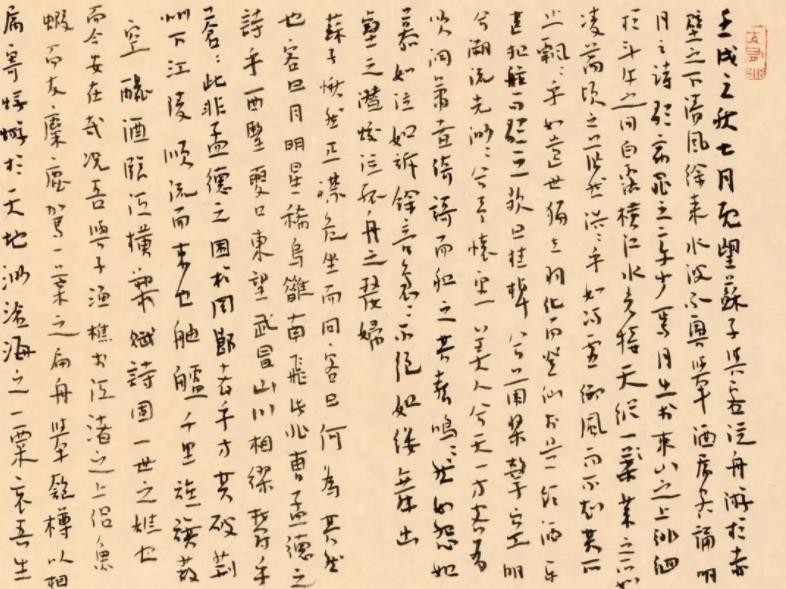 壬戌之秋七月既望蘇子與客泛舟游於赤
壁之下清風徐來水波不興舉酒屬客誦明
月之詩歌窈窕之章少焉月出於東山之上徘徊
於斗牛之間白露橫江水光接天縱一葦之所如
凌萬頃之茫然浩浩乎如馮虛御風而不知其所
止飄飄乎如遺世獨立羽化而登仙於是飲酒樂
甚扣舷而歌之歌曰桂棹兮蘭槳擊空明
兮溯流光渺渺兮予懷望美人兮天一方客有
吹洞簫者倚歌而和之其聲嗚嗚然如怨如
慕如泣如訴餘音裊裊不絕如縷舞幽
壑之潛蛟泣孤舟之嫠婦
蘇子愀然正襟危坐而問客曰何為其然
也客曰月明星稀烏鵲南飛此非曹孟德之
詩乎西望夏口東望武昌山川相繆鬱乎
蒼蒼此非孟德之困於周郎者乎方其破荊
州下江陵順流而東也舳艫千里旌旗蔽
空釃酒臨江橫槊賦詩固一世之雄也
而今安在哉況吾與子漁樵於江渚之上侶魚
蝦而友麋鹿駕一葉之扁舟舉匏樽以相
屬寄蜉蝣於天地渺滄海之一粟哀吾生